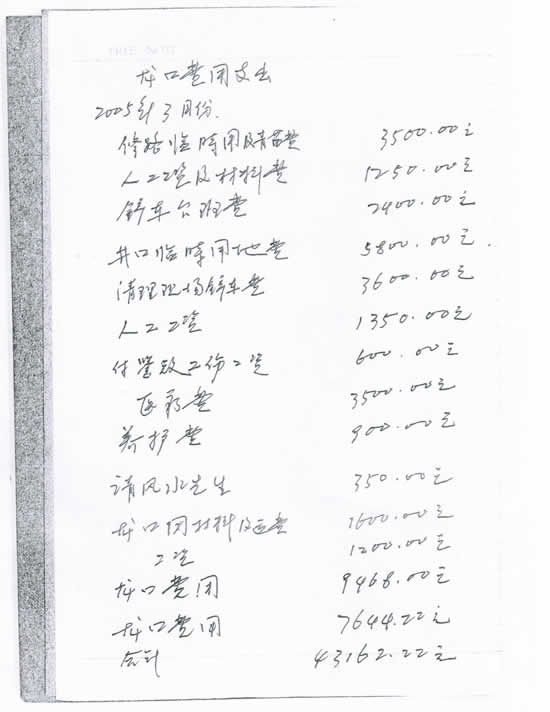 龙口费用支出
2005年3月份.
修路临時用及青苗费 3500.00元
人工工资及材料费 1250.00元
铲车台班费 2400.00元
井口临時用地费 5800.00元.
清理现场铲车费 3600.00元
人工工资 1350.00元
付 工伤工资 600.00元
医药费 3500.00元
养护费 900.00元
请风水先生 350.00元
龙口用材料及运费 1600.00元
工资 1200.00元
龙口费用 9468.00元
龙口费用 7644.22元
合计 43162.22元